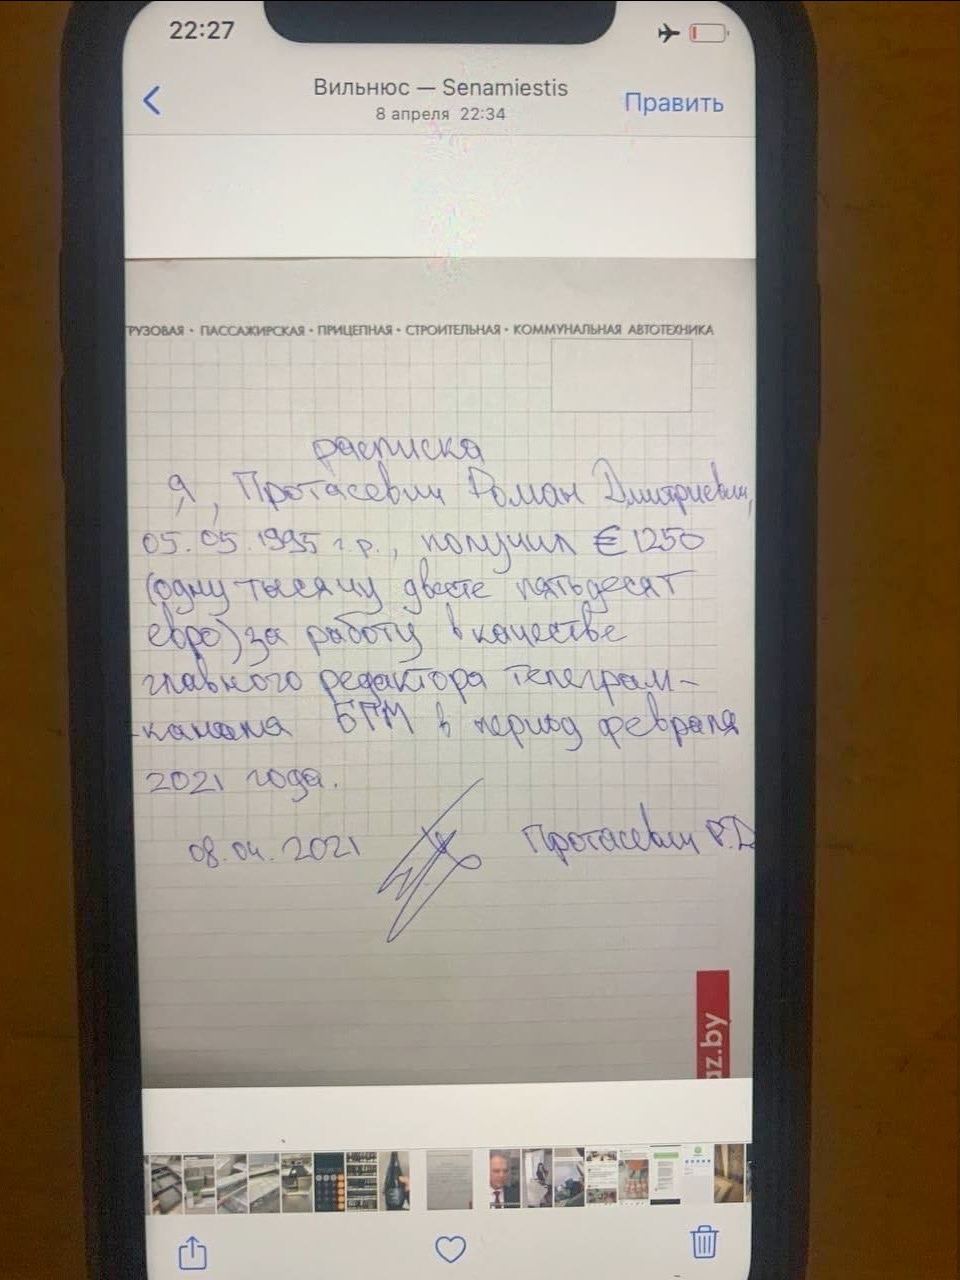 22:27
Вильнюс — Senamiestis
8 апреля 22:34
Править
РУЗОВАЯ • ПАССАЖИРСКАЯ • ПРИЦЕПНАЯ • СТРОИТЕЛЬНАЯ • КОММУНАЛЬНАЯ АВТОТЕХНИКА
расписка
Я, Протасевич Роман Дмитриевич,
05.05.1995 г.р., получил €1250
(одну тысячу двести пятьдесят
евро) за работу в качестве
главного редактора телеграм-
канала БГМ в период февраля
2021 года.
08.04.2021 Протасевич Р.Д
az.by